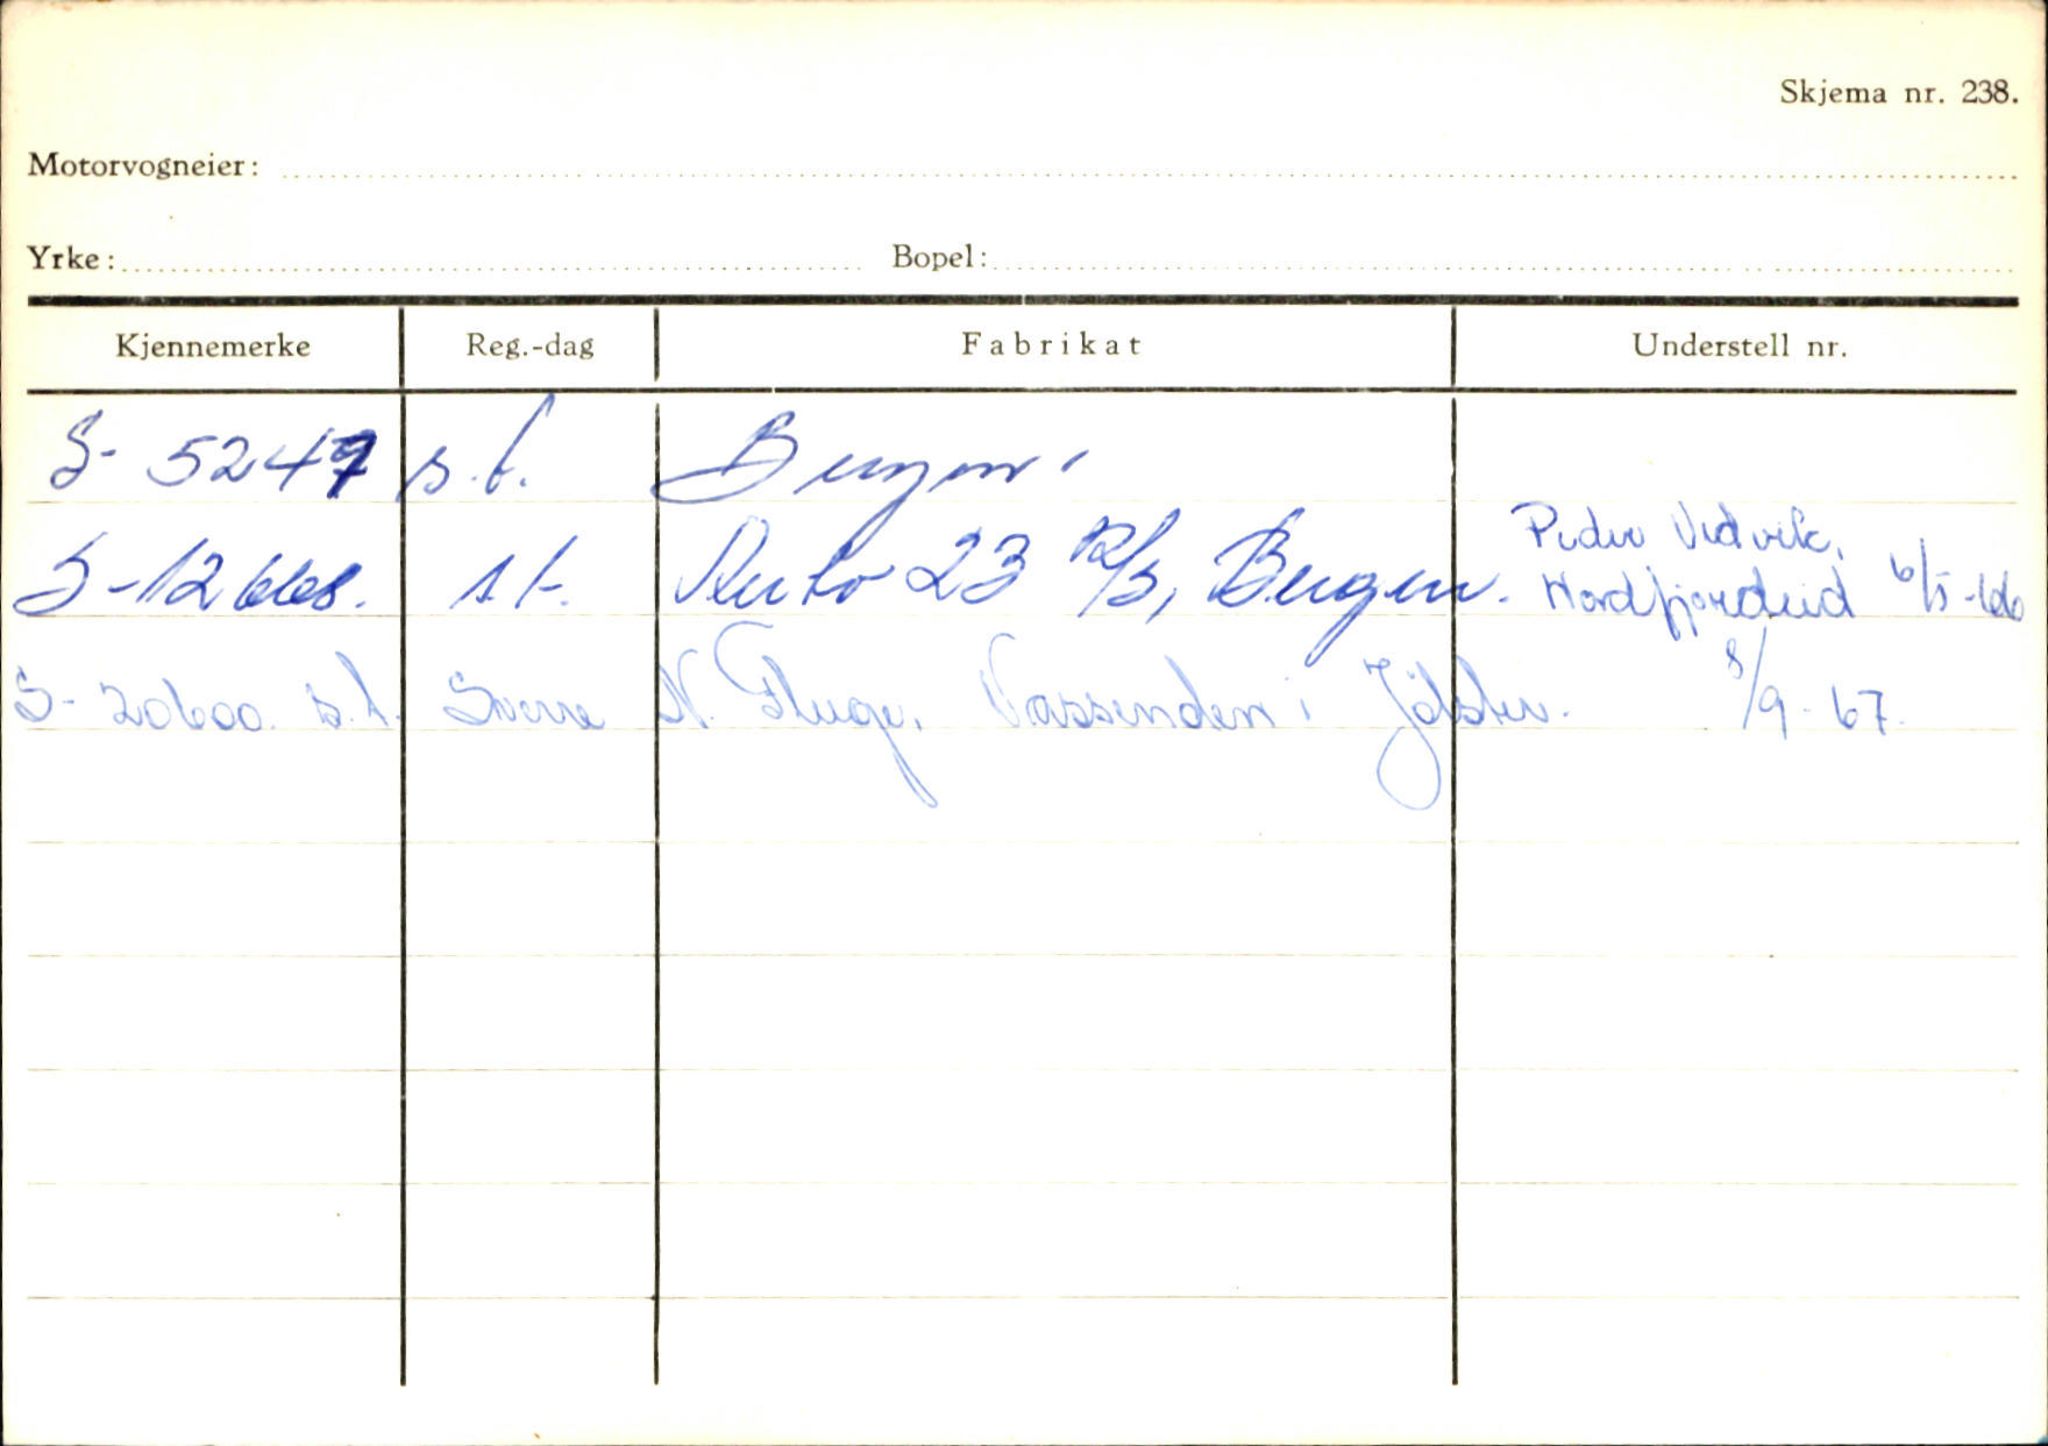 Skjema nr. 238.
Motorvogneier:
Yrke: Bopel:
Kjennemerke Reg.-dag Fabrikat Understell nr.
S- 5247 s.t. Bergen.
Peder Vedvik,
S-12668. s.t. Auto 23 A/S, Bergen. Nordfjordeid 6/5-66
S- 20600. s.t. Sverre N. Fluge, Vassenden i Jölster. 8/9-67.